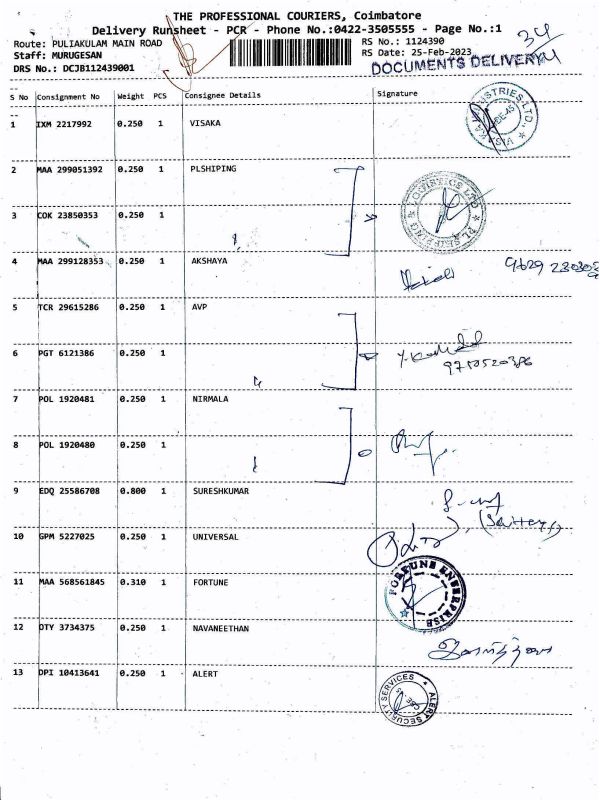 THE PROFESSIONAL COURIERS, Coimbatore
Delivery Runsheet - PCR - Phone No.:0422-3505555 - Page No.:1
34
Route: PULIAKULAM MAIN ROAD RS No.: 1124390
Staff: MURUGESAN RS Date: 25-Feb-2023
DRS No.: DCJB112439001 DOCUMENTS DELIVERY
S No Consignment No Weight PCS Consignee Details Signature
1 IXM 2217992 0.250 1 VISAKA
2 MAA 299051392 0.250 1 PLSHIPING
LOGISTICS LTD PL SHIPPING
3 COK 23850353 0.250 1
4 MAA 299128353 0.250 1 AKSHAYA
5 TCR 29615286 0.250 1 AVP
6 PGT 6121386 0.250 1
7 POL 1920481 0.250 1 NIRMALA
8 POL 1920480 0.250 1
9 EDQ 25586708 0.800 1 SURESHKUMAR
10 GPM 5227025 0.250 1 UNIVERSAL
11 MAA 568561845 0.310 1 FORTUNE
FORTUNE ENTERPRISE
12 DTY 3734375 0.250 1 NAVANEETHAN
13 DPI 10413641 0.250 1 ALERT
ALERT SECURITY SERVICES